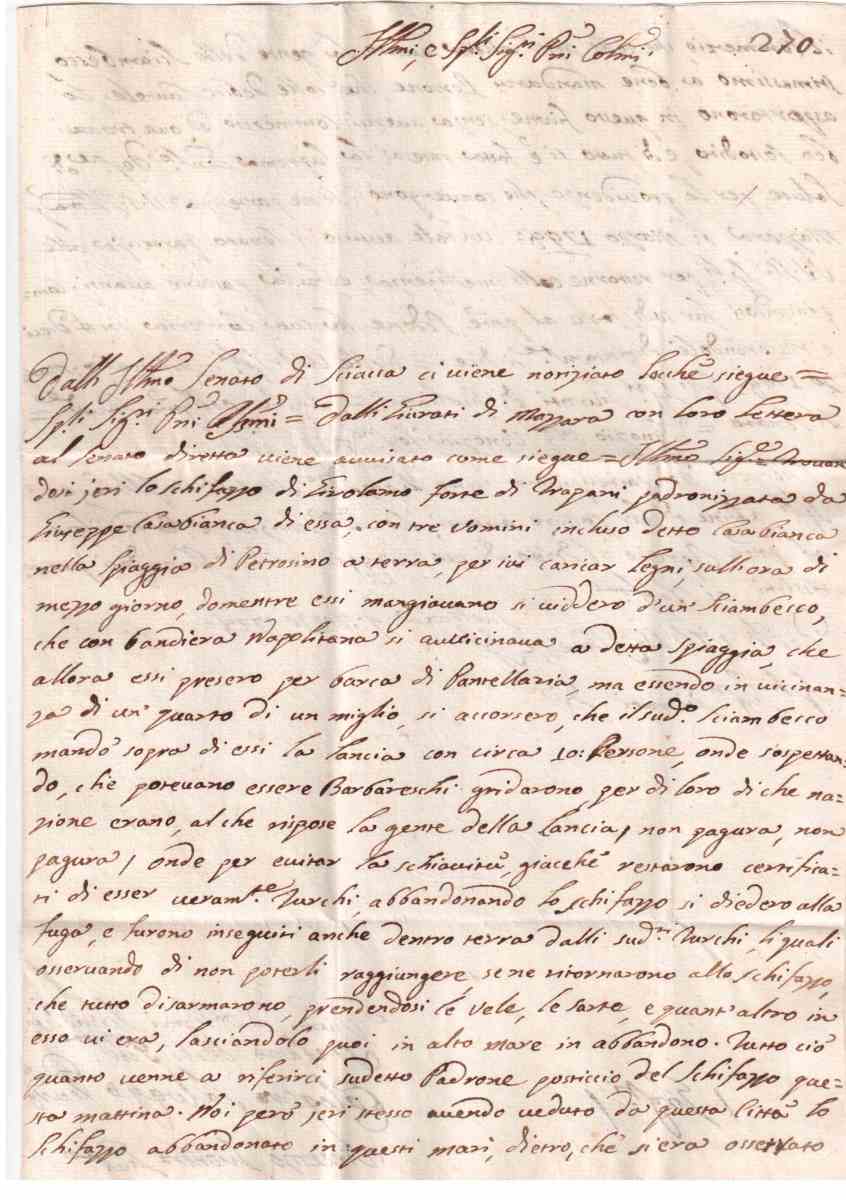 Ill.mi, e Sp.li Sig.ri P.ni Col.mi 270.
Dall' Ill.mo Senato di Sciacca ci viene notiziato locchè siegue =
Sp.li Sig.ri P.ni Oss.mi = Dalli Giurati di Mazzara con loro Lettera
al Senato diretta viene avvisato come siegue = Ill.mo Sig.re Trovan
dosi jeri lo schifazzo di Girolamo Forte di Trapani padronizzata da
Giuseppe Casabianca di essa, con tre Uomini incluso detto Casabianca
nella Spiaggia di Petrosino a terra, per ivi caricar Legni, sull'ora di
mezzo giorno, domentre essi mangiavano si viddero d'un Sciambecco,
che con bandiera Napolitana si avvicinava a detta Spiaggia, che
allora essi presero per barca di Pantellaria, ma essendo in vicinan-
za di un quarto di un miglio, si accorsero, che il sud.o Sciambecco
mandò sopra di essi la lancia con circa 10: Persone, onde sospettan-
do, che potevano essere Barbareschi gridarono, per di loro di che na-
zione erano, al che rispose la gente della Lancia, non pagura, non
pagura, onde per evitar la schiavitù, giacchè restarono certifica-
ti di esser veram.te Turchi, abbandonando lo schifazzo si diedero alla
fuga, e furono inseguiti anche dentro terra dalli sud.ti Turchi, li quali
osservando di non poterli raggiungere, se ne ritornarono allo schifazzo,
che tutto disarmarono, prendendosi le vele, le sarte, e quant'altro in
esso vi era, lasciandolo puoi in alto mare in abbandono. Tutto ciò
quanto venne a riferirci sudetto Padrone posticcio del Schifazzo que-
sta mattina. Noi però jeri stesso avendo veduto da questa Città lo
Schifazzo abbandonato in questi mari, dietro, che s'era osservato